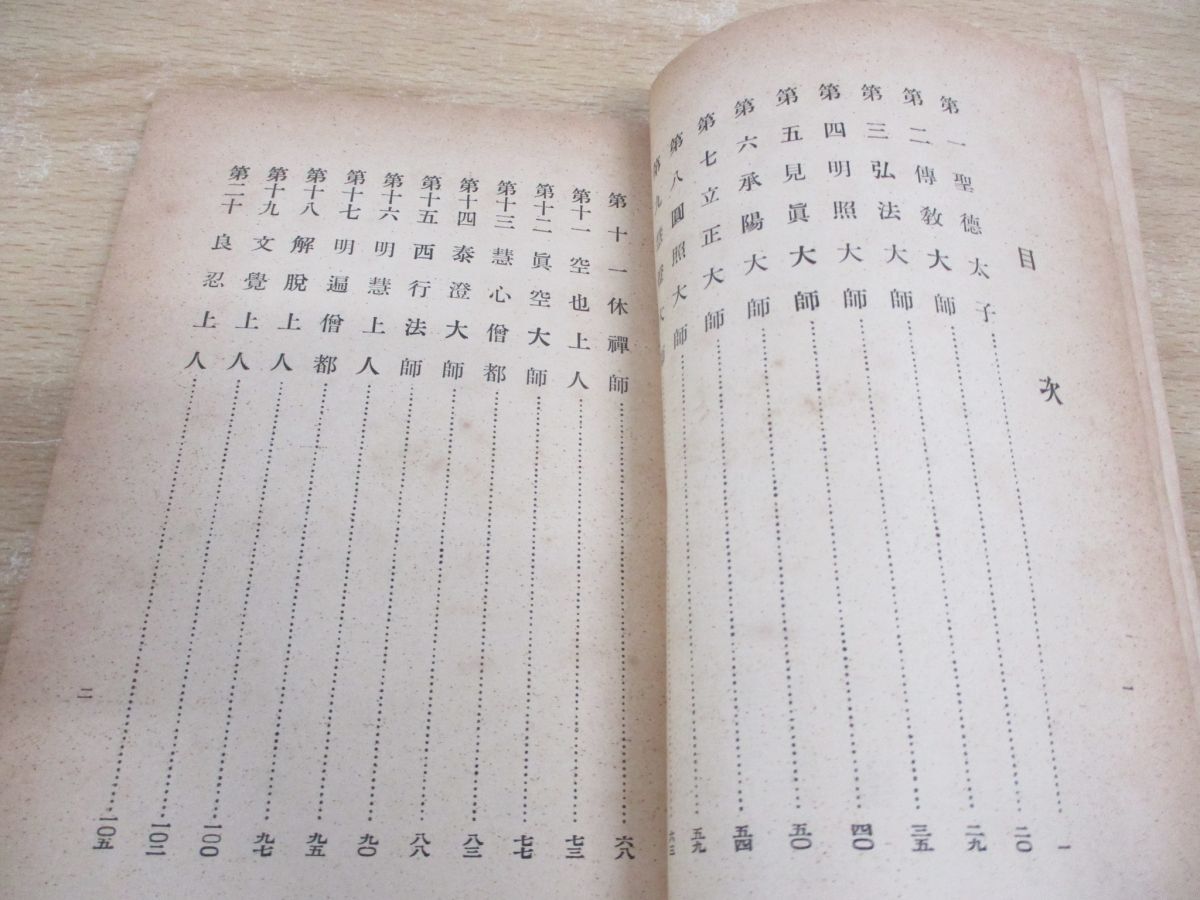 目次
第一聖德太子……一
第二傳敎大師……二〇
第三弘法大師……二九
第四明照大師……三五
第五見眞大師……四〇
第六承陽大師……五〇
第七立正大師……五四
第八圓照大師……五九
第九……六三
一
第十一休禪師……六八
第十一空也上人……七三
第十二眞空大師……七七
第十三慧心僧都……八三
第十四泰澄大師……八八
第十五西行法師……九〇
第十六明慧上人……九五
第十七明遍僧都……九七
第十八解脫上人……一〇〇
第十九文覺上人……一〇二
第二十良忍上人……一〇五
二